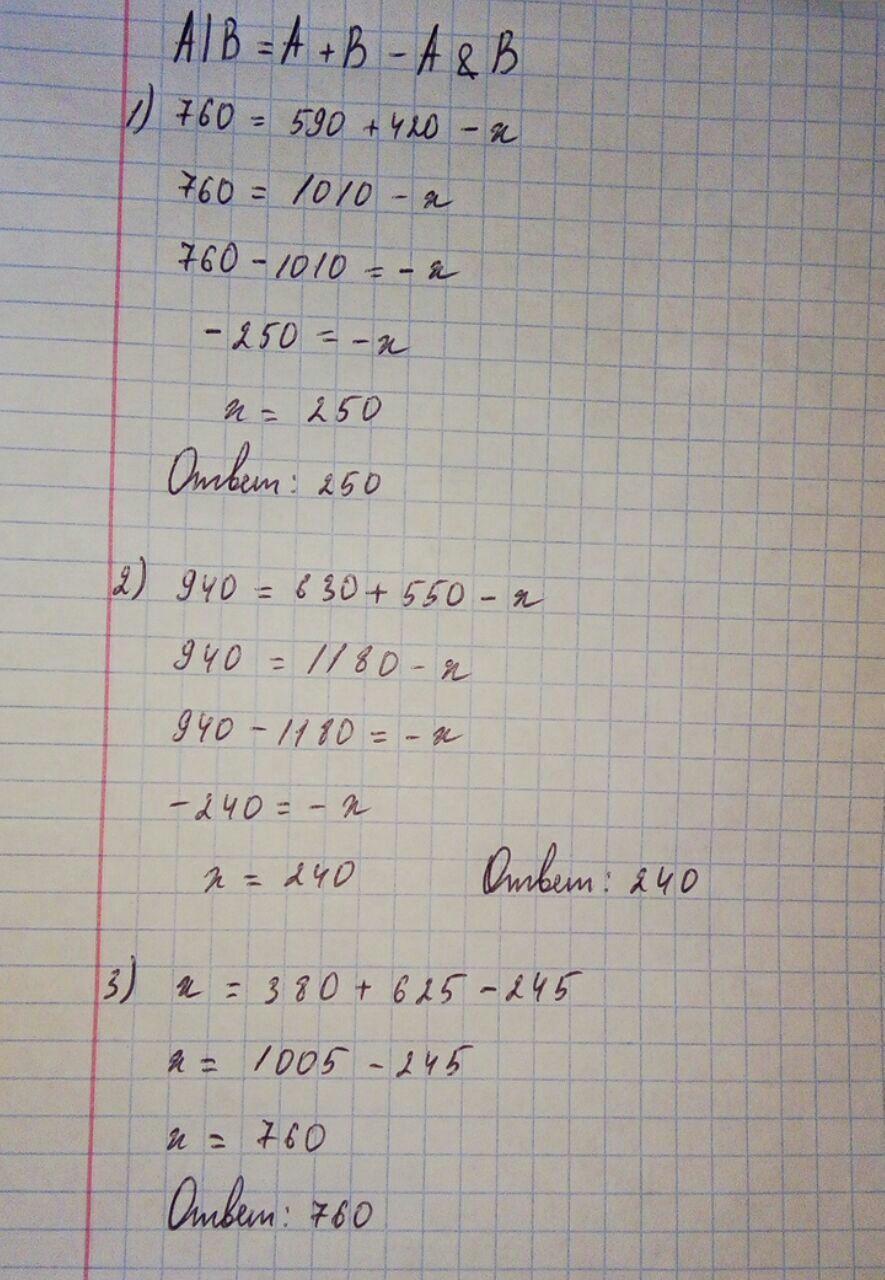 A|B = A + B - A & B
1) 760 = 590 + 420 - x
760 = 1010 - x
760 - 1010 = - x
- 250 = - x
x = 250
Ответ: 250
2) 940 = 630 + 550 - x
940 = 1180 - x
940 - 1180 = - x
- 240 = - x
x = 240 Ответ: 240
3) x = 380 + 625 - 245
x = 1005 - 245
x = 760
Ответ: 760